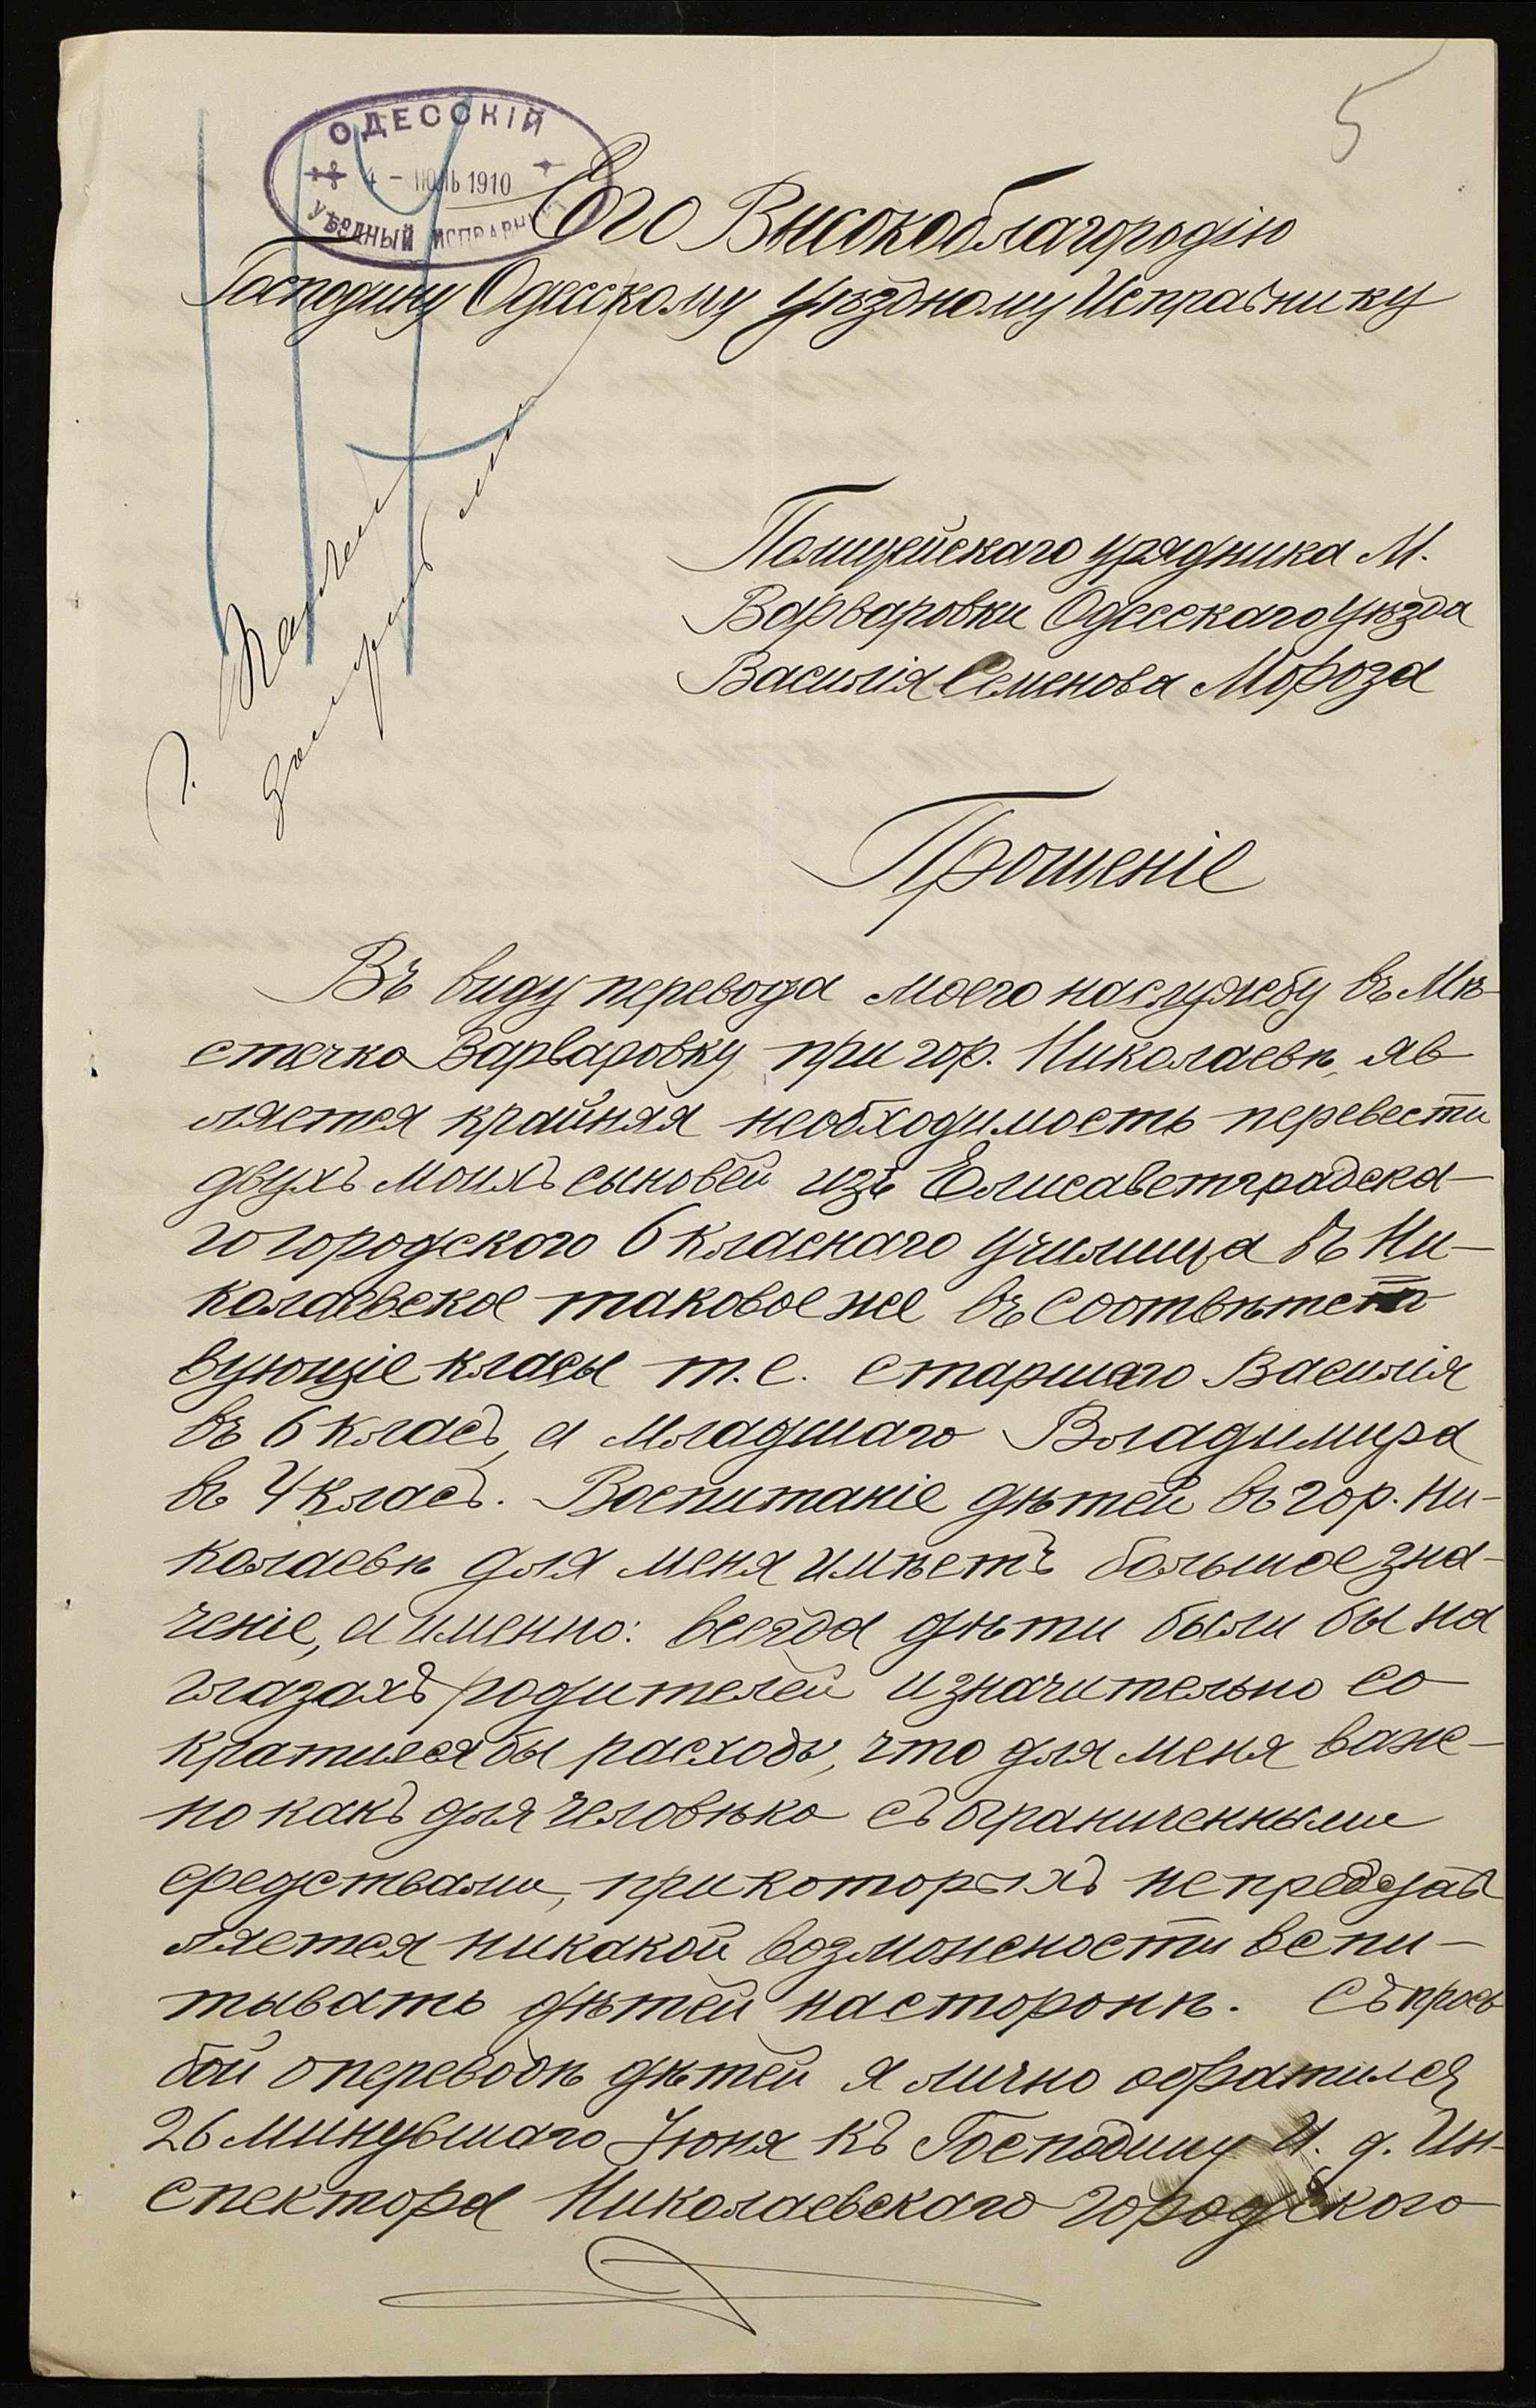 5
ОДЕССКІЙ
4 - ІЮЛЬ 1910
УѢЗДНЫЙ ИСПРАВНИКЪ
Его Высокоблагородію
Господину Одесскому Уѣздному Исправнику
Полицейскаго урядника М.
Варваровки Одесскаго Уѣзда
Василія Семенова Мороза
Прошеніе
Въ виду перевода моего на службу въ Мѣ-
стечко Варваровку при гор. Николаевѣ, яв-
ляется крайняя необходимость перевести
двухъ моихъ сыновей изъ Елисаветградска-
го городского 6 класнаго училища въ Ни-
колаевское таковое же въ соотвѣтст
вующіе класы т.е. старшаго Василія
въ 6 класъ, а младшаго Владимира
въ 4 класъ. Воспитаніе дѣтей въ гор. Ни-
колаевѣ для меня имѣетъ большое зна-
ченіе, а именно: всегда дѣти были бы на
глазахъ родителей и значительно со-
кратился бы расходы, что для меня важ-
но какъ для человѣка съ ограниченными
средствами, при которыхъ не представ
ляется никакой возможности вспи-
тывать дѣтей на сторонѣ. Съ прось
бой о переводѣ дѣтей я лично обратился
26 минувшаго Іюня къ Господину И. д. Ин-
спектора Николаевскаго городского